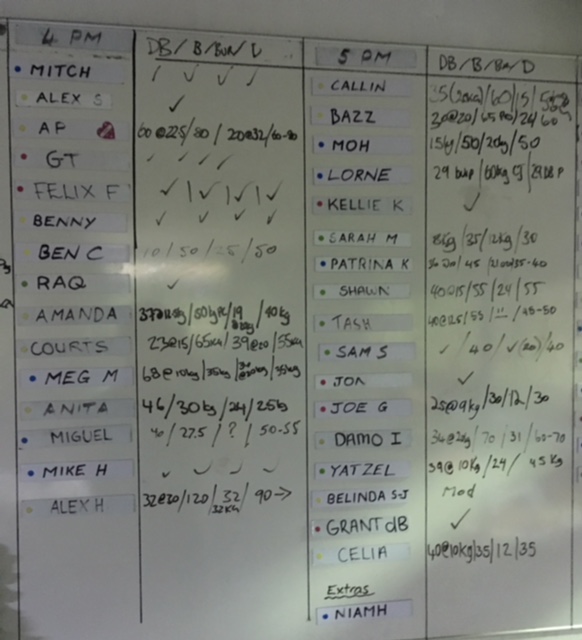 4 PM DB/B/BUR/D
MITCH ✓ ✓ ✓ ✓
ALEX S ✓
AP 60@225/80/20@32/60-80
GT ✓ ✓ ✓ ✓
FELIX F ✓/✓/✓/✓
BENNY ✓ ✓ ✓ ✓
BEN C 10/50/25/50
RAQ ✓
AMANDA /40kg
COURTS 23@15/65kg/39@20/55kg
MEG M 68@10kg/35kg
ANITA 46/30kg/24/25kg
MIGUEL /27.5/?/50-55
MIKE H ✓ ✓ ✓ ✓
ALEX H 32@20/120/32/90→
32KG
5 PM DB/B/Bur/D
CALLIN /60/15/
BAZZ 30@20/65/24/60
MOH 15kg/50/20kg/50
LORNE /60kg
KELLIE K ✓
SARAH M 8kg/35/12kg/30
PATRINA K /45 35-40
SHAWN 40@15/55/24/55
TASH /55/11/45-50
SAM S ✓/40/✓(20)/40
JON ✓
JOE G 25@9kg/30/12/30
DAMO I /70/31/60-70
YATZEL 39@10kg/24/45kg
BELINDA S-J Mod
GRANT dB ✓
CELIA 40@10kg/35/12/35
Extras
NIAMH